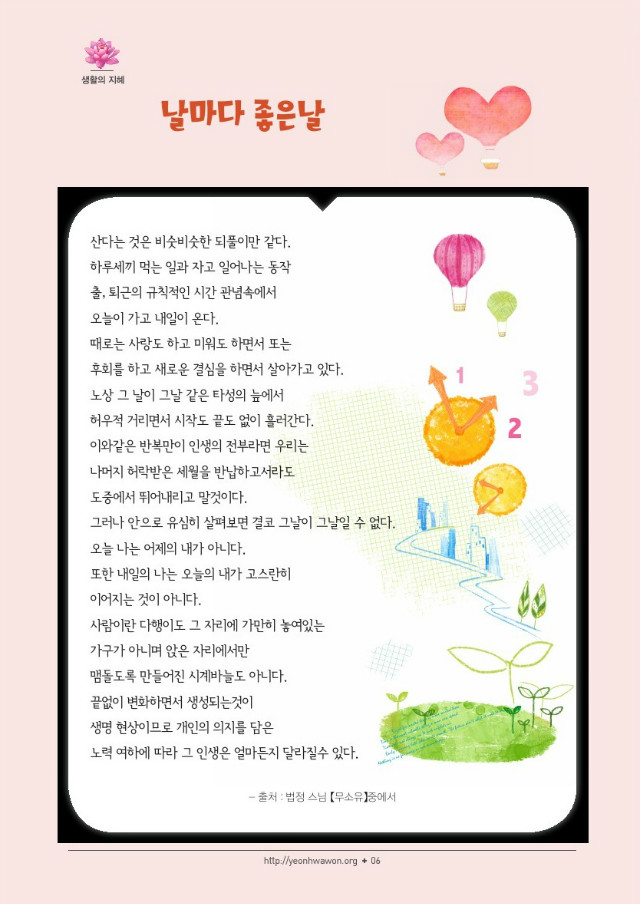 생활의 지혜
날마다 좋은날
산다는 것은 비슷비슷한 되풀이만 같다.
하루세끼 먹는 일과 자고 일어나는 동작
출, 퇴근의 규칙적인 시간 관념속에서
오늘이 가고 내일이 온다.
때로는 사랑도 하고 미워도 하면서 또는
후회를 하고 새로운 결심을 하면서 살아가고 있다.
노상 그 날이 그날 같은 타성의 늪에서
허우적 거리면서 시작도 끝도 없이 흘러간다.
이와같은 반복만이 인생의 전부라면 우리는
나머지 허락받은 세월을 반납하고서라도
도중에서 뛰어내리고 말것이다.
그러나 안으로 유심히 살펴보면 결코 그날이 그날일 수 없다.
오늘 나는 어제의 내가 아니다.
또한 내일의 나는 오늘의 내가 고스란히
이어지는 것이 아니다.
사람이란 다행이도 그 자리에 가만히 놓여있는
가구가 아니며 앉은 자리에서만
맴돌도록 만들어진 시계바늘도 아니다.
끝없이 변화하면서 생성되는것이
생명 현상이므로 개인의 의지를 담은
노력 여하에 따라 그 인생은 얼마든지 달라질수 있다.
1
3
2
– 출처 : 법정 스님 【무소유】중에서
http://yeonhwawon.org + 06